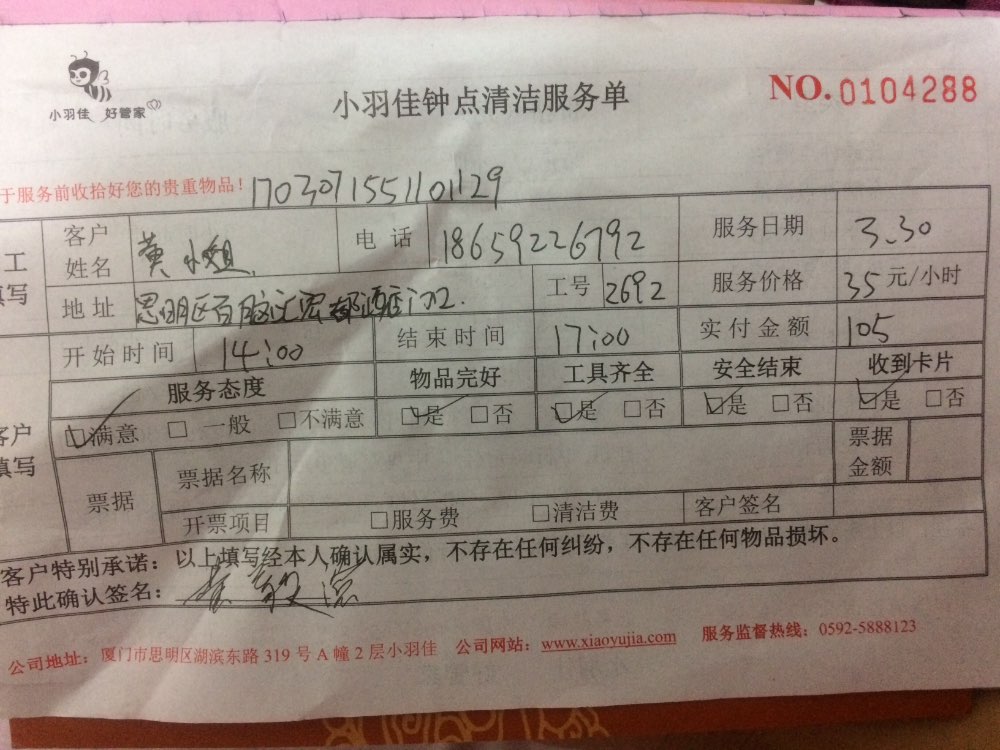 小羽佳 好管家
小羽佳钟点清洁服务单
NO. 0104288
于服务前收拾好您的贵重物品! 1703071551101129
工 填写
客户姓名 黄小姐 电话 18659226792 服务日期 3.30
地址 思明区百脑汇 工号 2692 服务价格 35元/小时
开始时间 14:00 结束时间 17:00 实付金额 105
客户 填写
服务态度 物品完好 工具齐全 安全结束 收到卡片
☑满意 □一般 □不满意 ☑是 □否 ☑是 □否 ☑是 □否 ☑是 □否
票据 票据名称 票据金额
开票项目 □服务费 □清洁费 客户签名
客户特别承诺:以上填写经本人确认属实,不存在任何纠纷,不存在任何物品损坏。
特此确认签名:
公司地址:厦门市思明区湖滨东路 319 号 A 幢 2 层小羽佳 公司网站:www.xiaoyujia.com 服务监督热线:0592-5888123